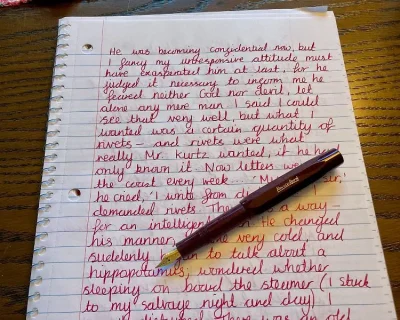 He was becoming confidential now, but
I fancy my unresponsive attitude must
have exasperated him at last, for he
judged it necessary to inform me he
feared neither God nor devil, let
alone any mere man. I said I could
see that very well, but what I
wanted was a certain quantity of
rivets - and rivets were what
really Mr. Kurtz wanted, if he had
only known it. Now letters
the coast every week... 'My sir,'
he cried, 'I write from
demanded rivets. a way -
for an intelligent He changed
his manner; very cold, and
suddenly to talk about a
hippopotamus; wondered whether
sleeping on board the steamer (I stuck
to my salvage night and day) I
disturbed. There was an old